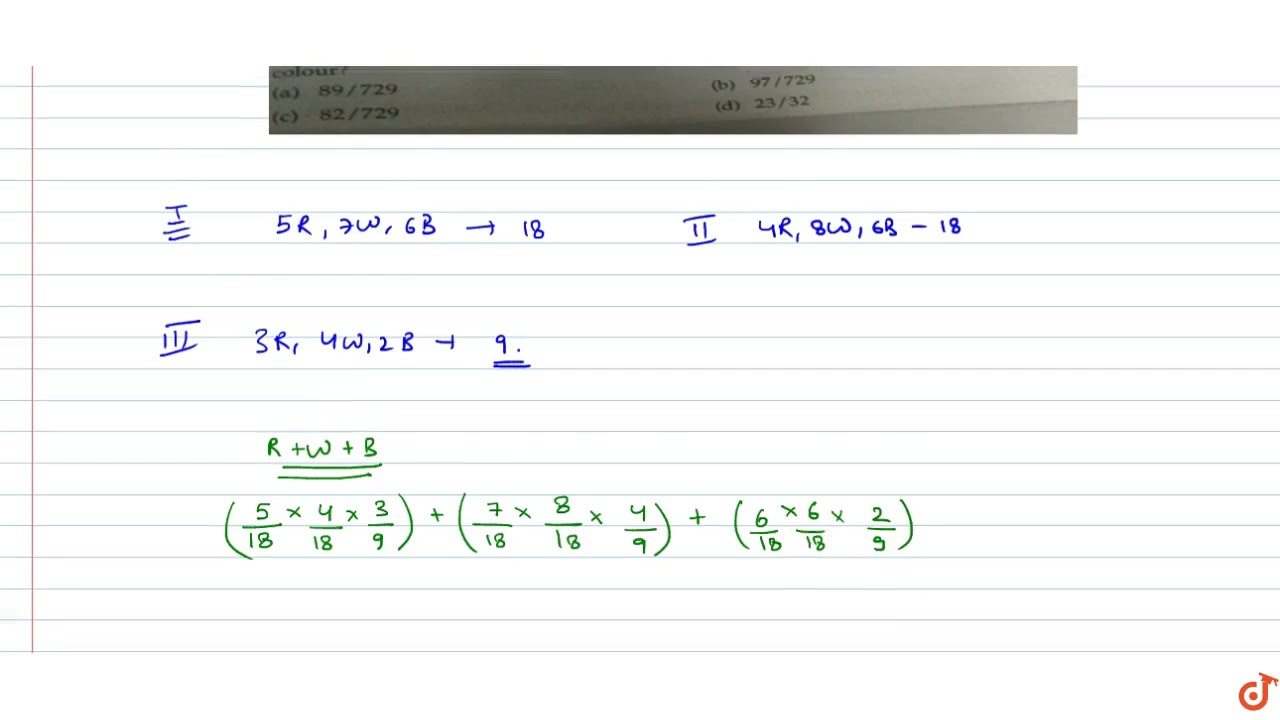 colour?
(a) 89/729 (b) 97/729
(c) 82/729 (d) 23/32
I 5R, 7W, 6B → 18 II 4R, 8W, 6B – 18
III 3R, 4W, 2B → 9.
R + W + B
(5/18 × 4/18 × 3/9) + (7/18 × 8/18 × 4/9) + (6/18 × 6/18 × 2/9)